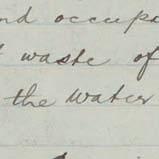 nd occupa
waste of
the water